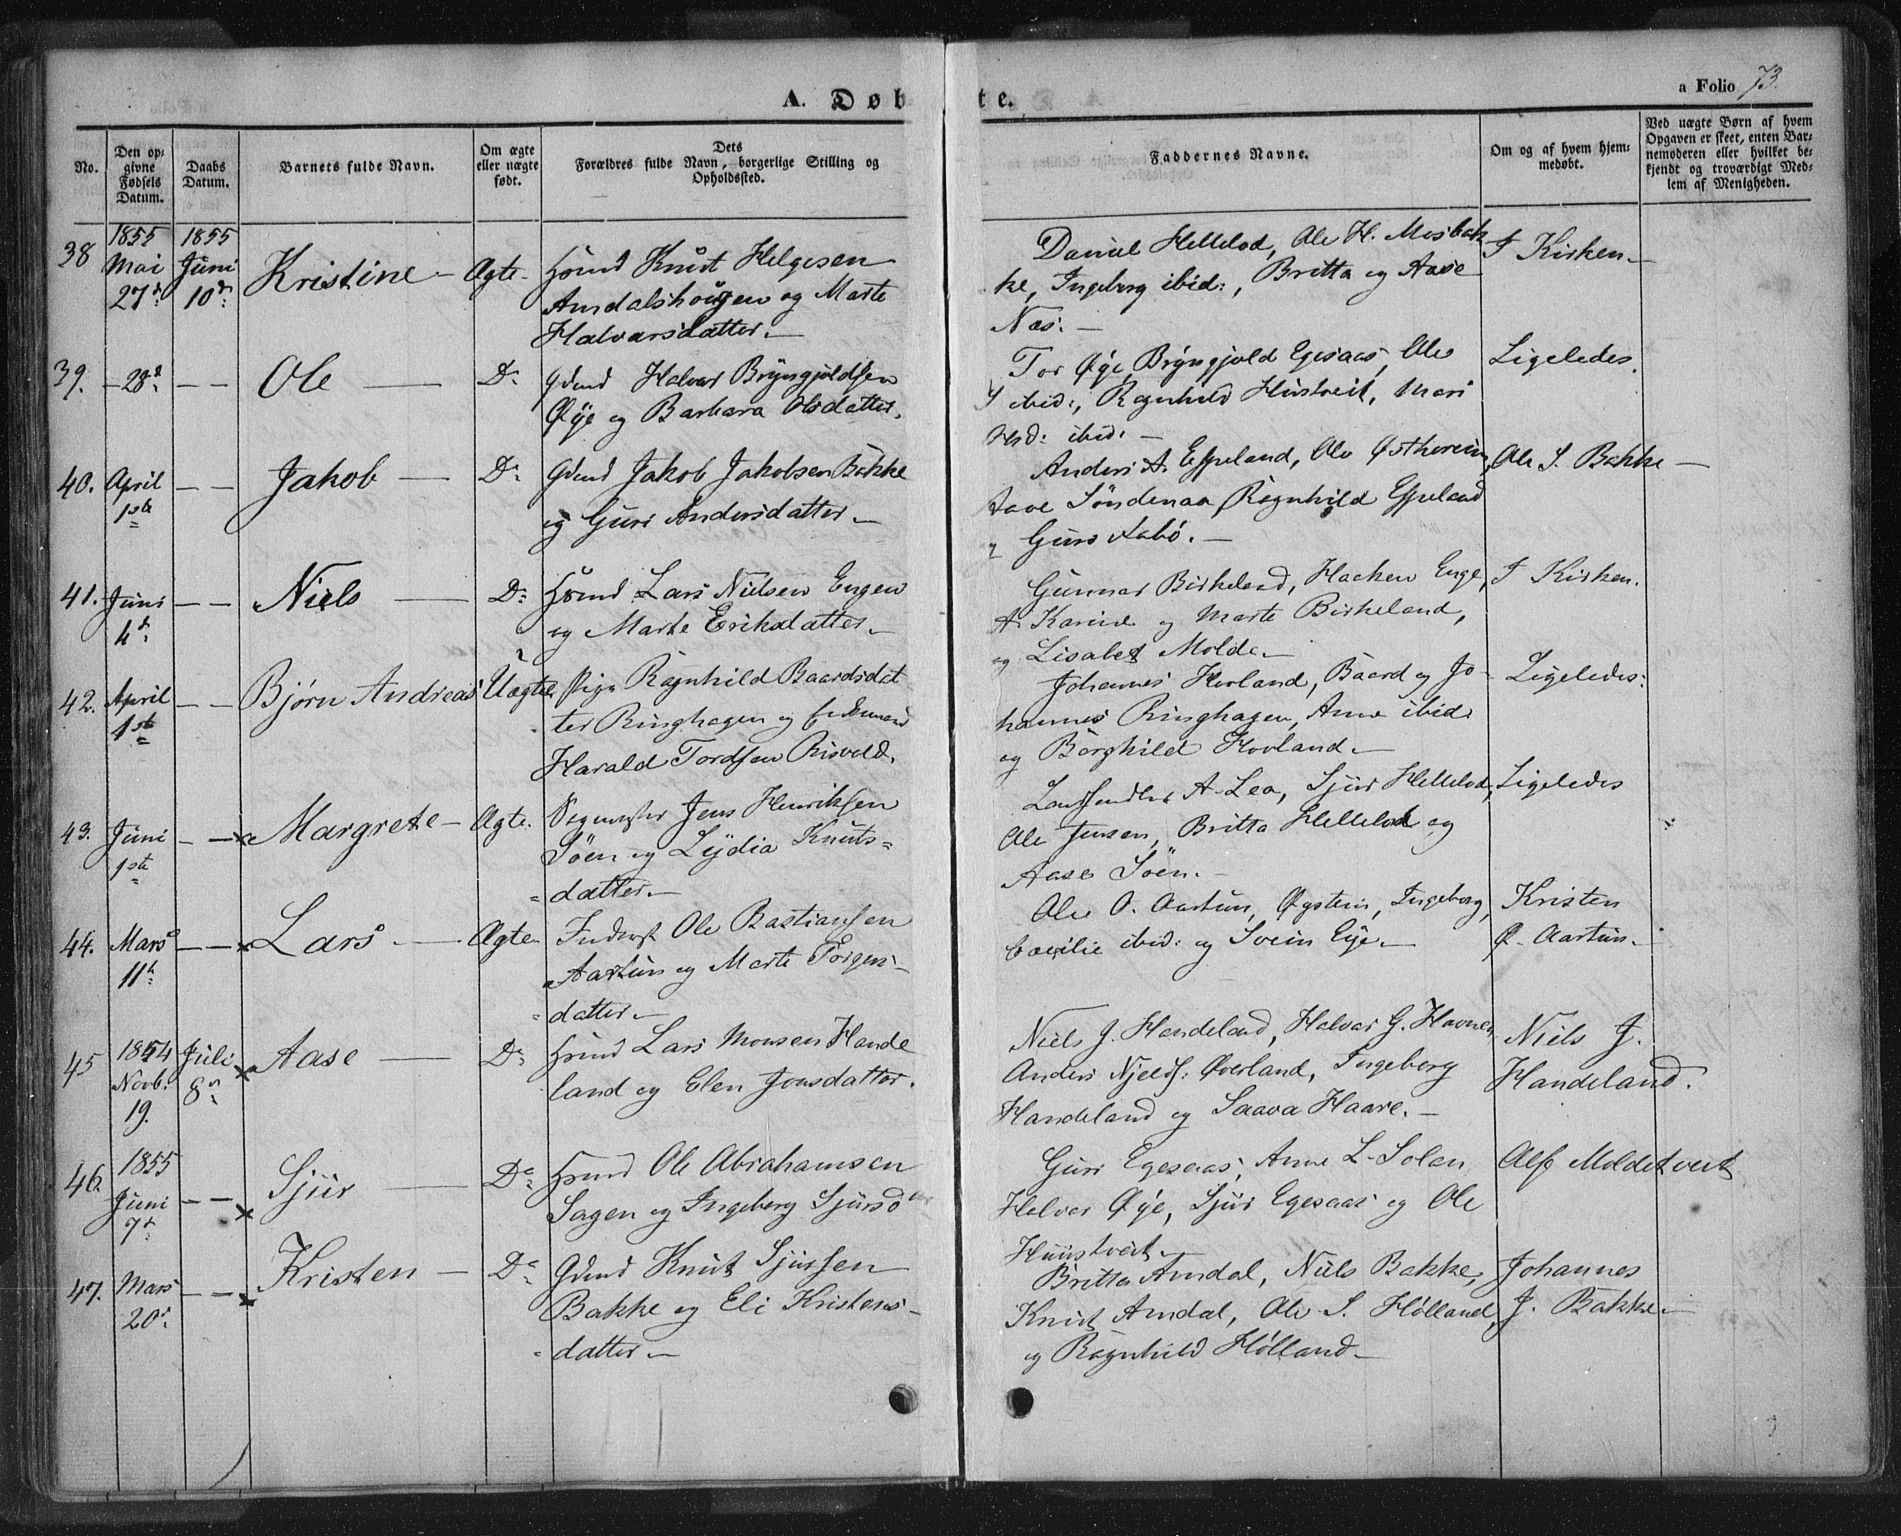 A. Døbte.
a Folio 73.
No.
Den op-
givne
Fødsels
Datum.
Daabs
Datum.
Barnets fulde Navn.
Om ægte
eller uægte
født.
Dets
Forældres fulde Navn, borgerlige Stilling og
Opholdssted.
Faddernes Navne.
Om og af hvem hjem-
medøbt.
Ved uægte Børn af hvem
Opgaven er skeet, enten Bar-
nemoderen eller hvilket be-
kjendt og troværdigt Med-
lem af Menigheden.
38
1855
Mai
27d:
1855
Juni
10d:
Kristine —
Ægte.
Hsmd Knut Helgesen
Amdalshougen og Marte
Halvarsdatter. —
Daniel Hellelod, Ole H. Mosbak
ke, Ingeborg ibid:, Britta og Aase
Næs. —
I Kirken —
39.
— 28d: — —
Ole —
Do
Gdmd Halvar Bryngjoldsen
Øye og Barbara Olsdatter.
Tor Øye, Bryngjold Egesaas, Ole
ibid:, Ragnhild Hustveit, Mari
ibid: —
Ligeledes.
40.
April
1ste
— —
Jakob —
Do
Gdmd Jakob Jakobsen Bakke
og Guri Andersdatter —
Anders A. Espeland, Ole Østhereim
Aave Söndenaa, Ragnhild Espeland
og Guro Aabö. —
Ole S. Bakke —
41.
Juni
4d:
— —
Niels —
Do
Hsmd Lars Nielsen Engen
og Marte Eriksdatter —
Gunnar Birkeland, Hachen Enge,
A. Karine og Marte Birkeland,
og Lisabet Molde. —
I Kirken.
42.
April
1ste
— —
Bjørn Andreas
Uægte
Pige Ragnhild Baardsdat
ter Ringhagen og Enkemand
Harald Tordsen Risvold.
Johannes Hovland, Baard og Jo-
hannes Ringhagen, Anne ibid:
og Borghild Hovland. —
Ligeledes:
43.
Juni
1ste
— — ×
Margrete —
Ægte.
Vegmester Jens Henriksen
Söen og Lydia Knuts=
datter. —
A. Lea, Sjur Hellelod,
Ole Jensen, Britta Hellelod og
Aase Söen. —
Ligeledes
44.
Mars
11t:
— — ×
Lars —
Ægte
Inderst Ole Bastiansen
Aartun og Marte Torgers-
datter —
Ole O. Aartun, Øystein, Ingeborg,
Cecilie ibid: og Svein Eye. —
Kristen
Ø. Aartun. —
45
1854
Novb.
19.
Juli
8de
×
Aase —
Do
Hsmd Lars Monsen Hande
land og Elen Jonsdatter.
Niels J. Handeland, Halvar G. Havnen
Anders Njelds: Øverland, Ingeborg
Handeland og Saava Haare. —
Niels J.
Handeland.
46.
1855
Juni
7d:
— — ×
Sjur —
Do
Hsmd Ole Abrahamsen
Sagen og Ingeborg Sjursd
Guri Egesaas, Anne L. Solan
Halvar Øye, Sjur Egesaas og Ole
Huustveit. —
Alf Moldetveit
47.
Mars
20d:
— — ×
Kristen —
Do
Gdmd Knut Sjursen
Bakke og Eli Kristens-
datter —
Britta Amdal, Niels Bakke,
Knut Amdal, Ole S. Hölland,
og Ragnhild Hölland —
Johannes
J. Bakke —